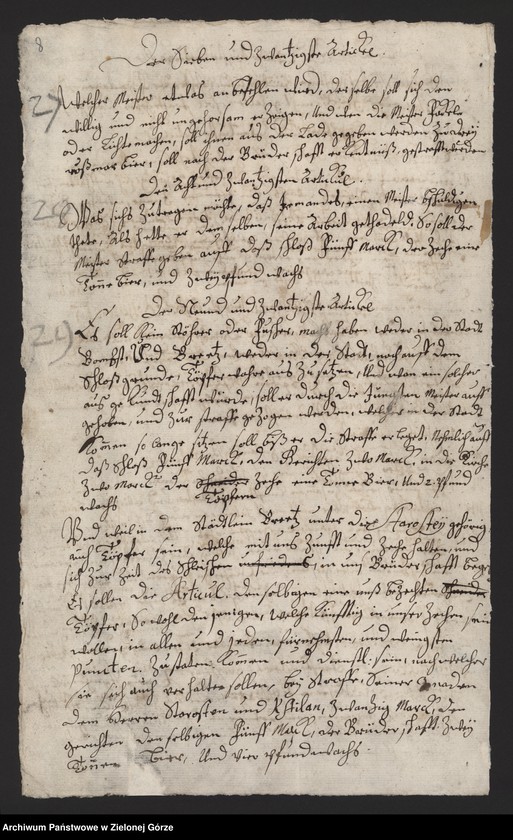 8
Der Sieben und Zwantzigste Artickel.
27 Welcher Meister etwas anbefohlen wird, derselbe soll sich den
willig und nicht ungehorsam erzeigen, Und wen die Meister
oder Lichte machen, soll ihnen aus der Lade gegeben werden Zu drey
bier, soll nach der Brüderschafft erkentnüß, gestrafft werden
Der Acht und Zwantzigsten Artickul.
28 Was sichs Zutragen möchte, daß Jemandes, einen Meister beschuldigen
thete, Als hette er demselben, seine Arbeit gethadeld, So soll der
Meister Straffe geben auffs daß Schloß Fünff Marck, der Zeche eine
Tone bier, und Zwey pfund wachs
Der Neund und Zwantzigste Artickel
29 Es soll kein Störer oder Pusher, macht haben weder in der Stadt
Bombst, Und Breetz, weder in der Stadt, noch auff dem
Schloßgrunde, Töpffer wahre aus Zusetzen, Und wan ein solcher
aus ge kundschafft würde, soll er durch die Jüngsten Meister auff
gehoben, und Zur straffe gezogen werden, welcher in der Stadt
komen so lange sitzen soll biß er die Straffe erleget, Nehmlich auff
daß Schloß Fünff Marck, den Gerichten Zwo Marck, in die Kirche
Zwo Marck der Zeche eine Tonne Bier, Und 2 pfund
Töpfern
wachs
Und weil in dem Städtlein Breetz unter die Starostey gehörig
auch Töpfer sein, welche mit uns Zunfft und Zeche halten, und
sich Zur Zeit des in uns Brüderschafft
Es sollen die Articul, denselbigen eine uns
Töpfer, So wohl denjenigen, welche künfftig in unser Zechen sein
wollen, in allen und jeden, fürnehmsten, und wenigsten
puncten, Zustaten komen und dienstl. sein, nach welcher
sie sich auch verhalten sollen, bey Straffe, Seiner gnaden
dem Herren Starosten und Zwantzig Marck, den
gerichten denselbigen Fünff Marck, der Brüderschafft Zwey
Tonen Bier, Und vier pfund wachs.
Archiwum Państwowe w Zielonej Górze